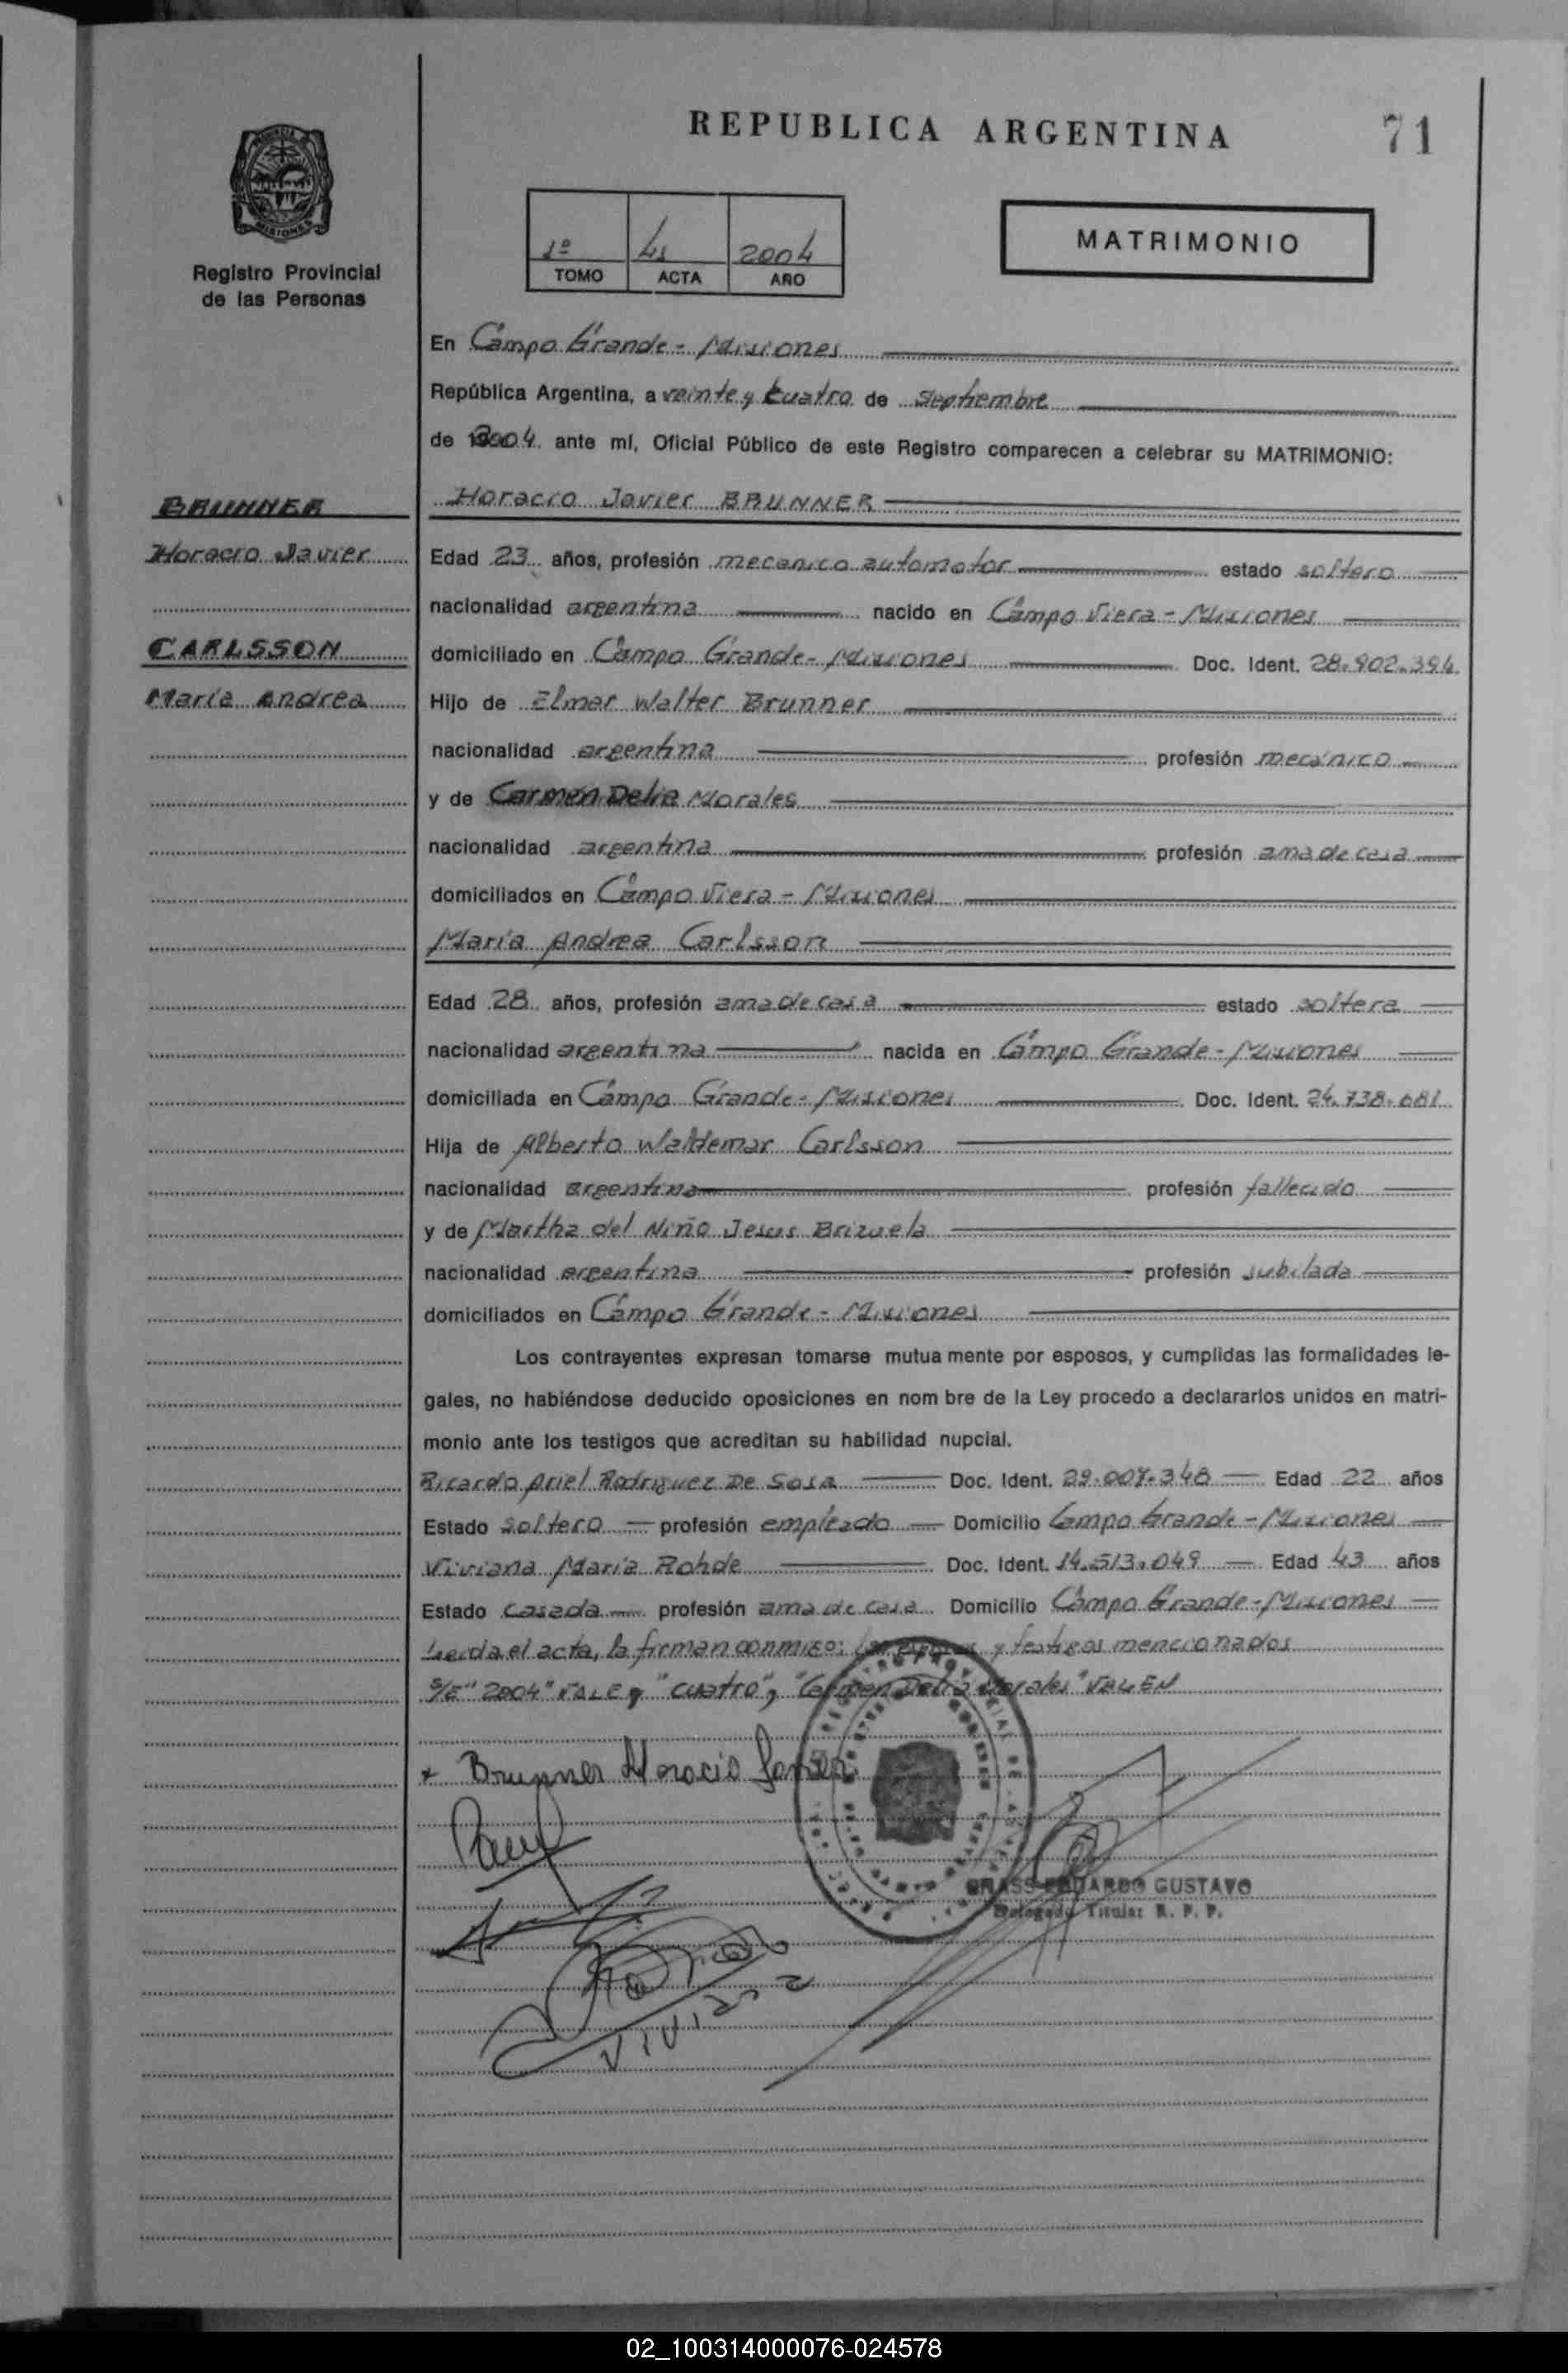 REPUBLICA ARGENTINA
71
MISIONES
Registro Provincial
de las Personas
1º 2004
TOMO ACTA AÑO
MATRIMONIO
En Campo Grande - Misiones
República Argentina, a veinte y cuatro de septiembre
de 2004 ante mí, Oficial Público de este Registro comparecen a celebrar su MATRIMONIO:
BRUNNER
Horacio Javier BRUNNER
Horacio Javier
Edad 23 años, profesión mecanico automotor estado soltero
nacionalidad argentina nacido en Campo Viera - Misiones
CARLSSON
domiciliado en Campo Grande - Misiones Doc. Ident. 28.902.394
María Andrea
Hijo de Elmar Walter Brunner
nacionalidad argentina profesión mecánico
y de Carmen Delia Morales
nacionalidad argentina profesión ama de casa
domiciliados en Campo Viera - Misiones
María Andrea Carlsson
Edad 28 años, profesión ama de casa estado soltera
nacionalidad argentina nacida en Campo Grande - Misiones
domiciliada en Campo Grande - Misiones Doc. Ident. 24.738.681
Hija de Alberto Waldemar Carlsson
nacionalidad argentina profesión fallecido
y de Martha del Niño Jesus Brizuela
nacionalidad argentina profesión jubilada
domiciliados en Campo Grande - Misiones
Los contrayentes expresan tomarse mutua mente por esposos, y cumplidas las formalidades le-
gales, no habiéndose deducido oposiciones en nom bre de la Ley procedo a declararlos unidos en matri-
monio ante los testigos que acreditan su habilidad nupcial.
Ricardo Ariel Rodriguez De Sosa Doc. Ident. 29.007.348 Edad 22 años
Estado soltero profesión empleado Domicilio Campo Grande - Misiones
Viviana María Rohde Doc. Ident. 14.513.049 Edad 43 años
Estado casada profesión ama de casa Domicilio Campo Grande - Misiones
Leída el acta, la firman conmigo: los esposos y testigos mencionados
S/E "2004" VALE y "cuatro", "Carmen Delia Morales" VALEN
Brunner Horacio Javier
GUSTAVO
Delegado Titular R. P. P.
Viviana
02_100314000076-024578